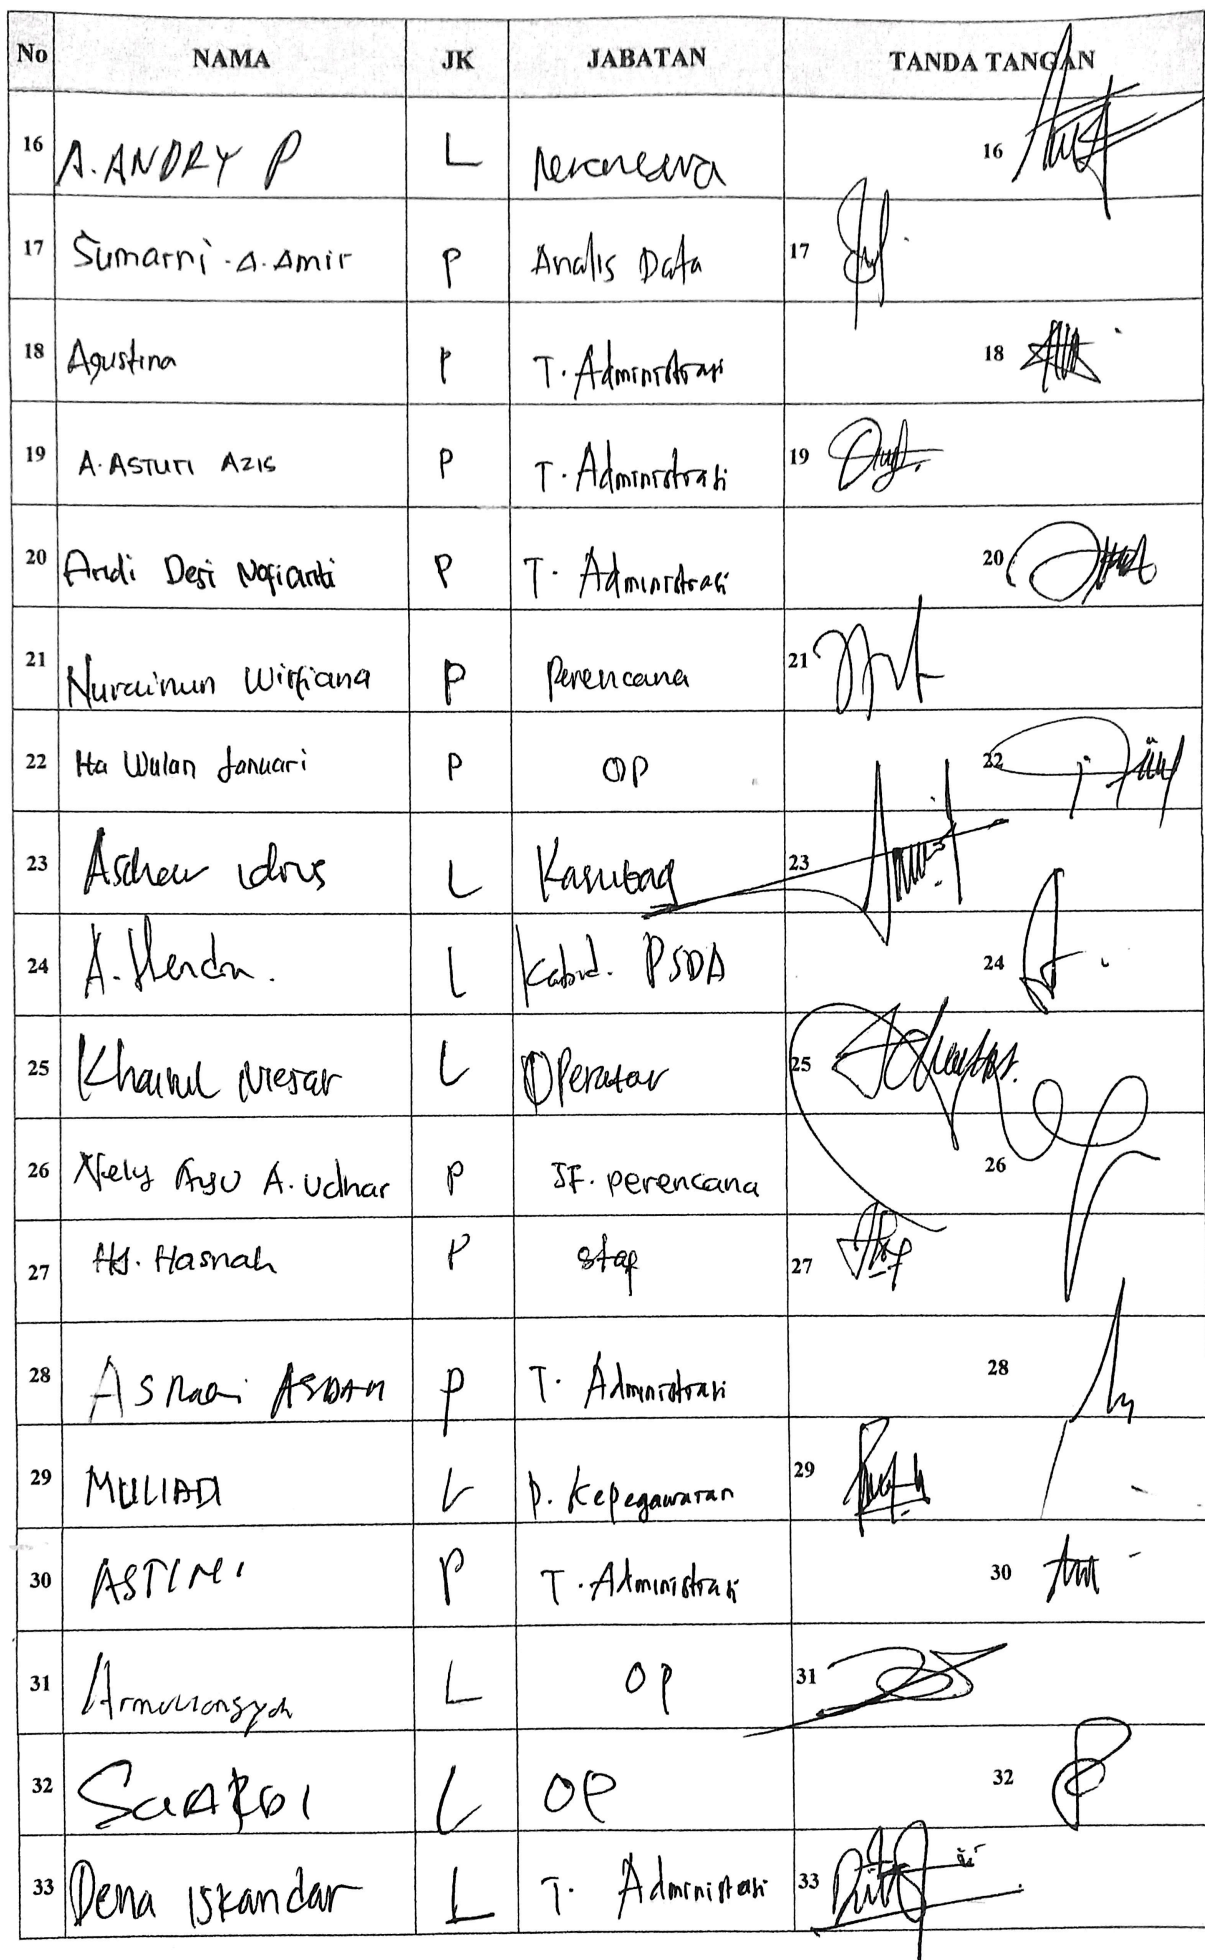 No NAMA JK JABATAN TANDA TANGAN
16 A. ANDRY P L Perencana 16
17 Sumarni . A. Amir P Analis Data 17
18 Agustina P T. Administrasi 18
19 A. ASTUTI AZIS P T. Administrasi 19
20 Andi Desi Nofianti P T. Administrasi 20
21 Nurainun Wirfiana P Perencana 21
22 Ita Wulan Januari P OP 22
23 idrus L Kasubag 23
24 A. Hendra. L Kabid. PSDA 24
25 Khairul L Operator 25
26 Nely Ayu A. Udhar P JF. perencana 26
27 HJ. Hasnah P Staf 27
28 P T. Administrasi 28
29 MULIADI L P. Kepegawaian 29
30 ASTINI P T. Administrasi 30
31 Armuliansyah L OP 31
32 SUARDI L OP 32
33 Dena Iskandar L T. Administrasi 33